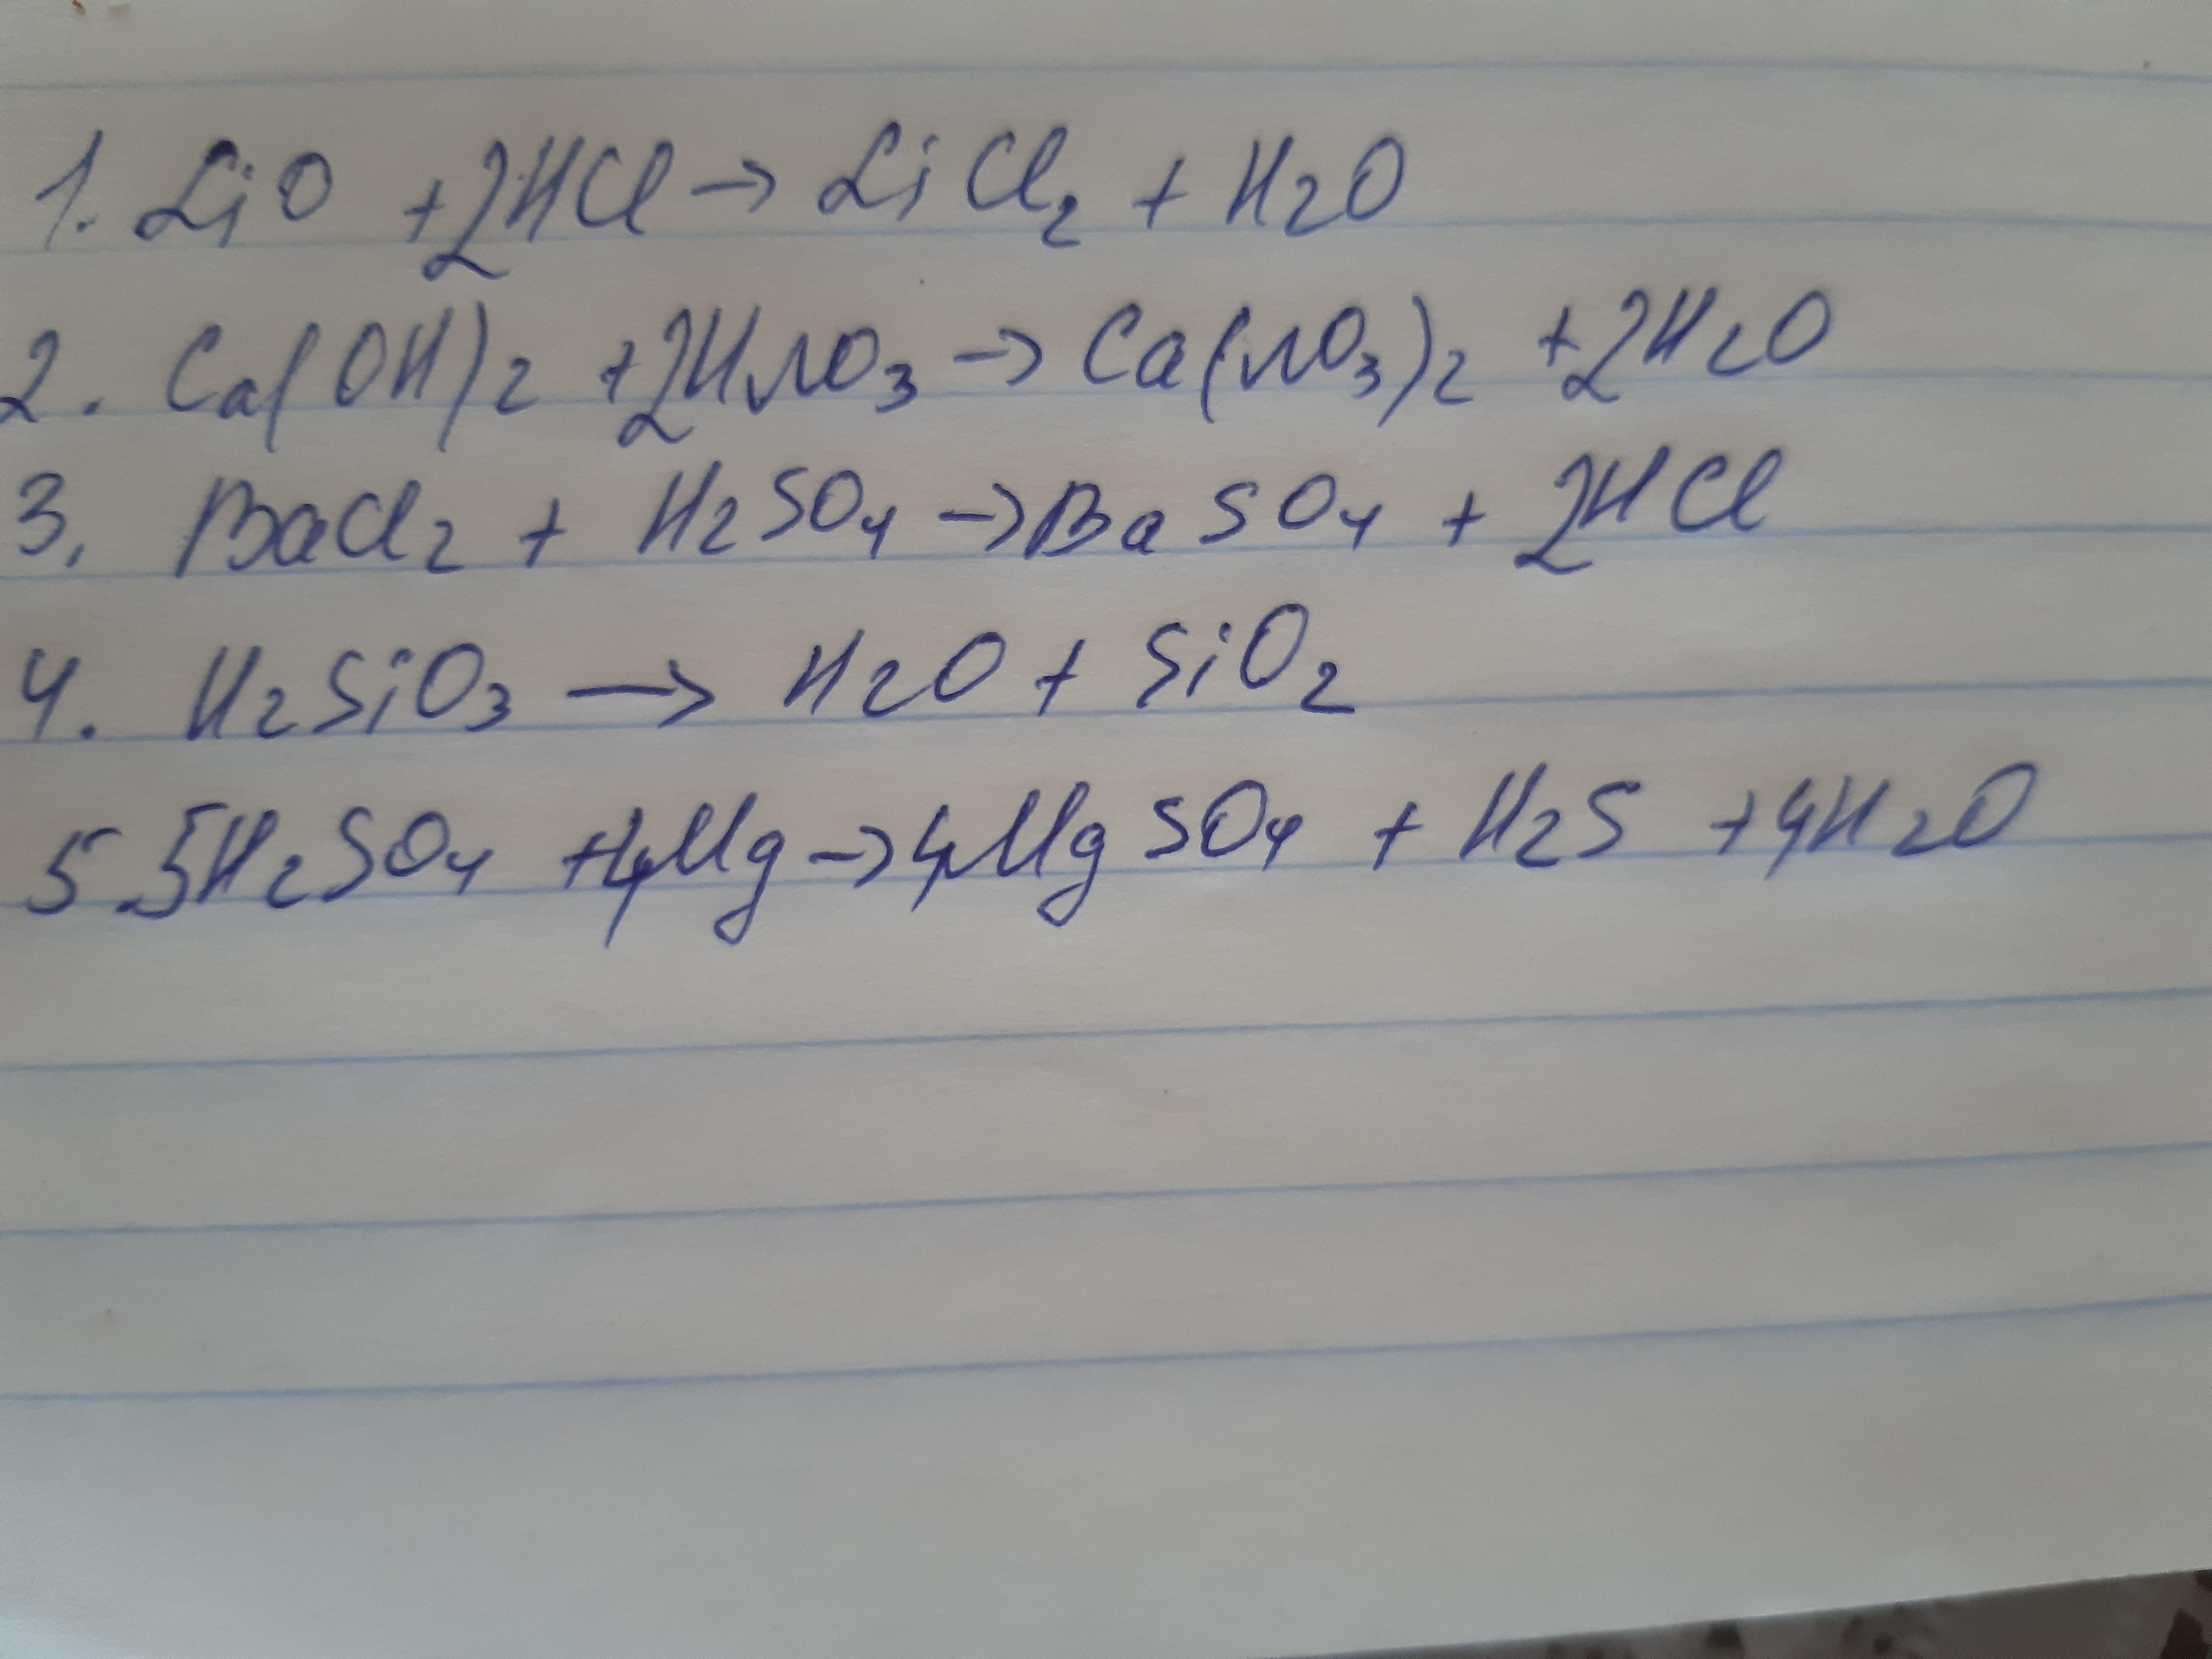 1. LiO + 2HCl → LiCl₂ + H₂O
2. Ca(OH)₂ + 2HNO₃ → Ca(NO₃)₂ + 2H₂O
3. BaCl₂ + H₂SO₄ → BaSO₄ + 2HCl
4. H₂SiO₃ → H₂O + SiO₂
5. 5H₂SO₄ + 4Mg → 4MgSO₄ + H₂S + 4H₂O